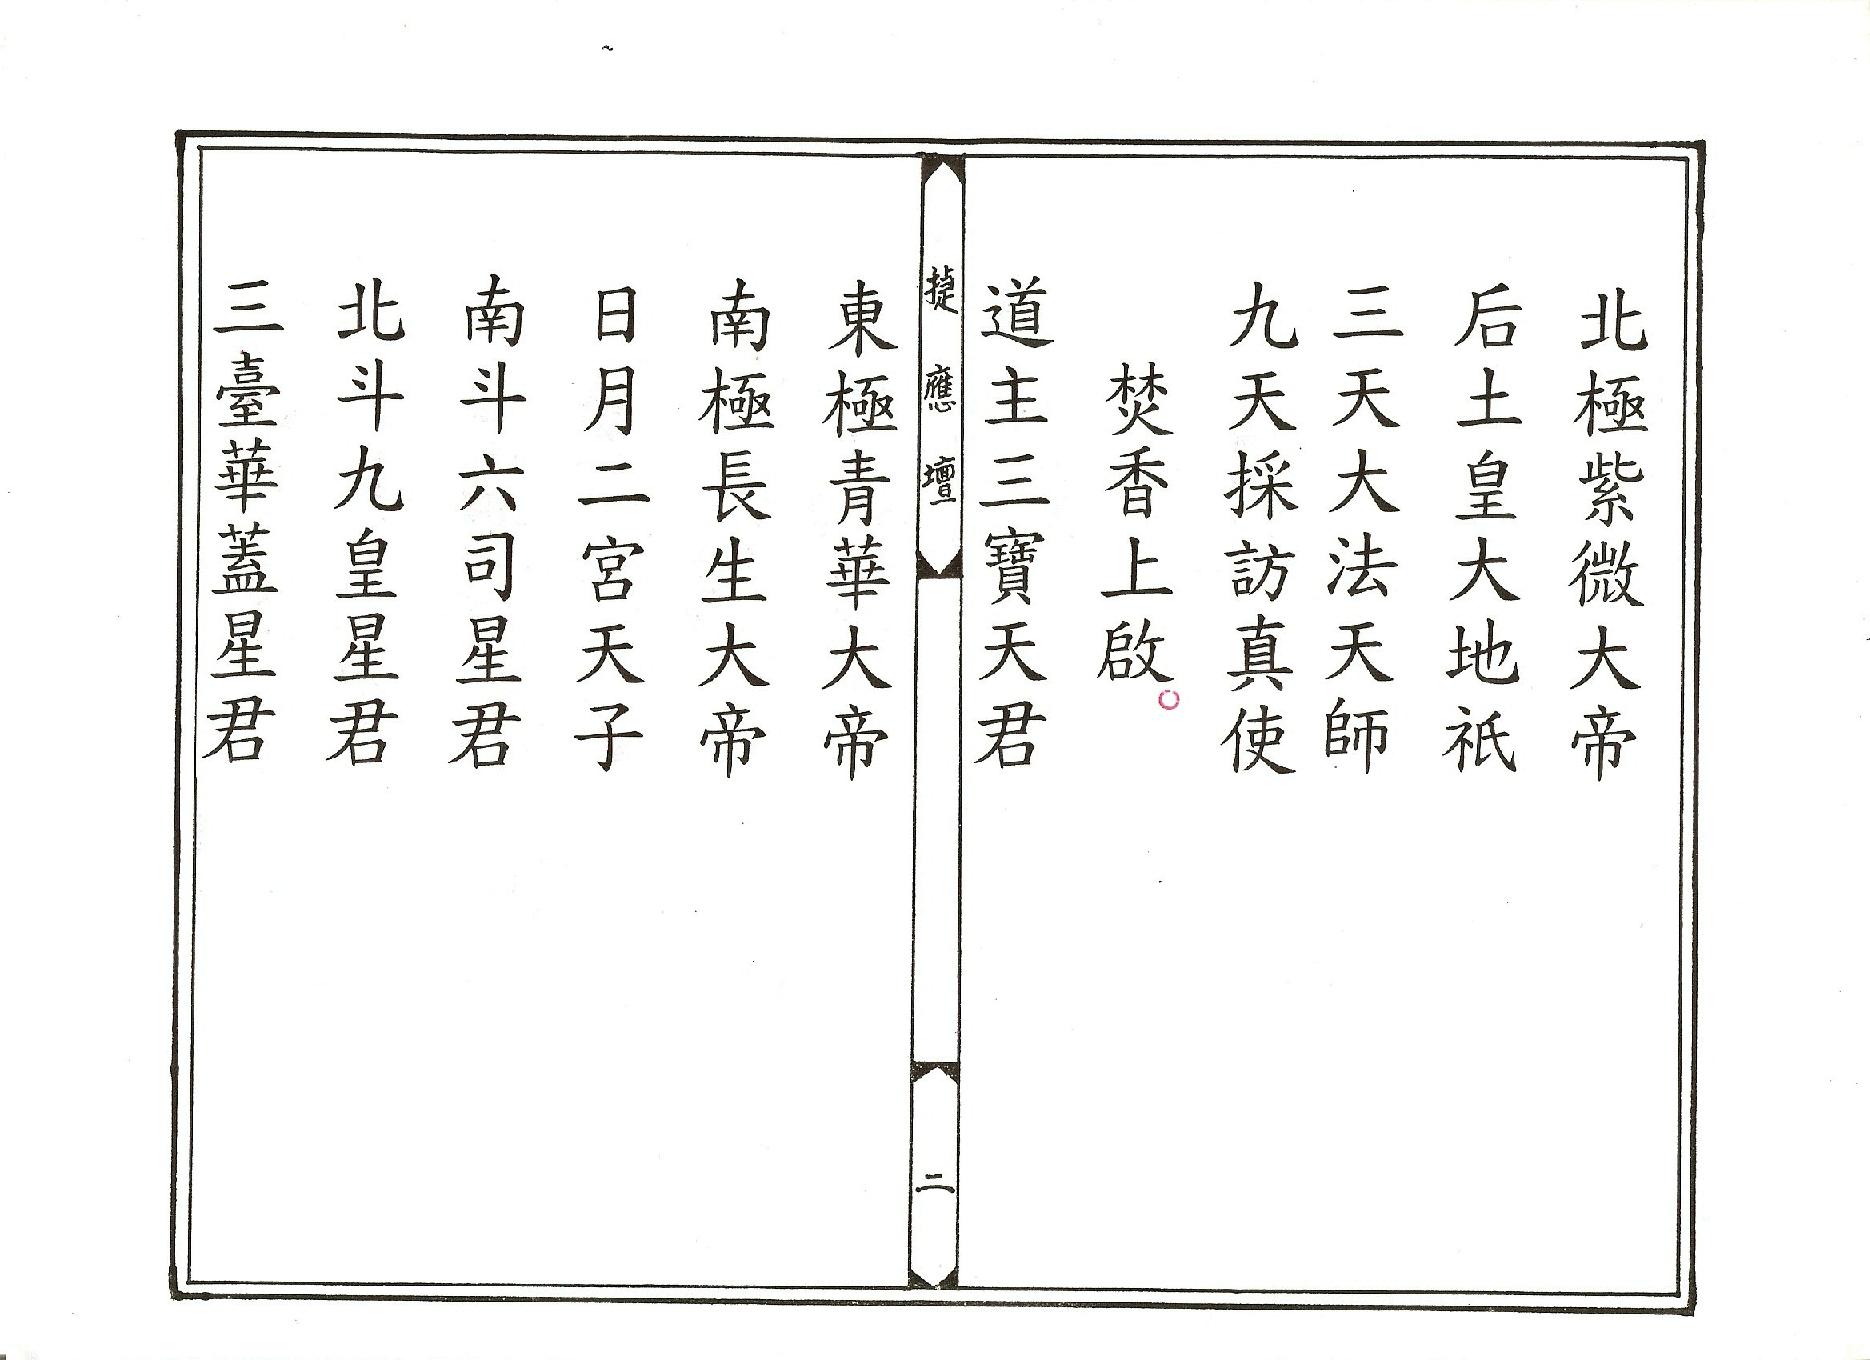 北極紫微大帝
后土皇大地祇
三天大法天師
九天採訪真使
焚香上啟
道主三寶天君
捷應壇
二
東極青華大帝
南極長生大帝
日月二宮天子
南斗六司星君
北斗九皇星君
三臺華蓋星君